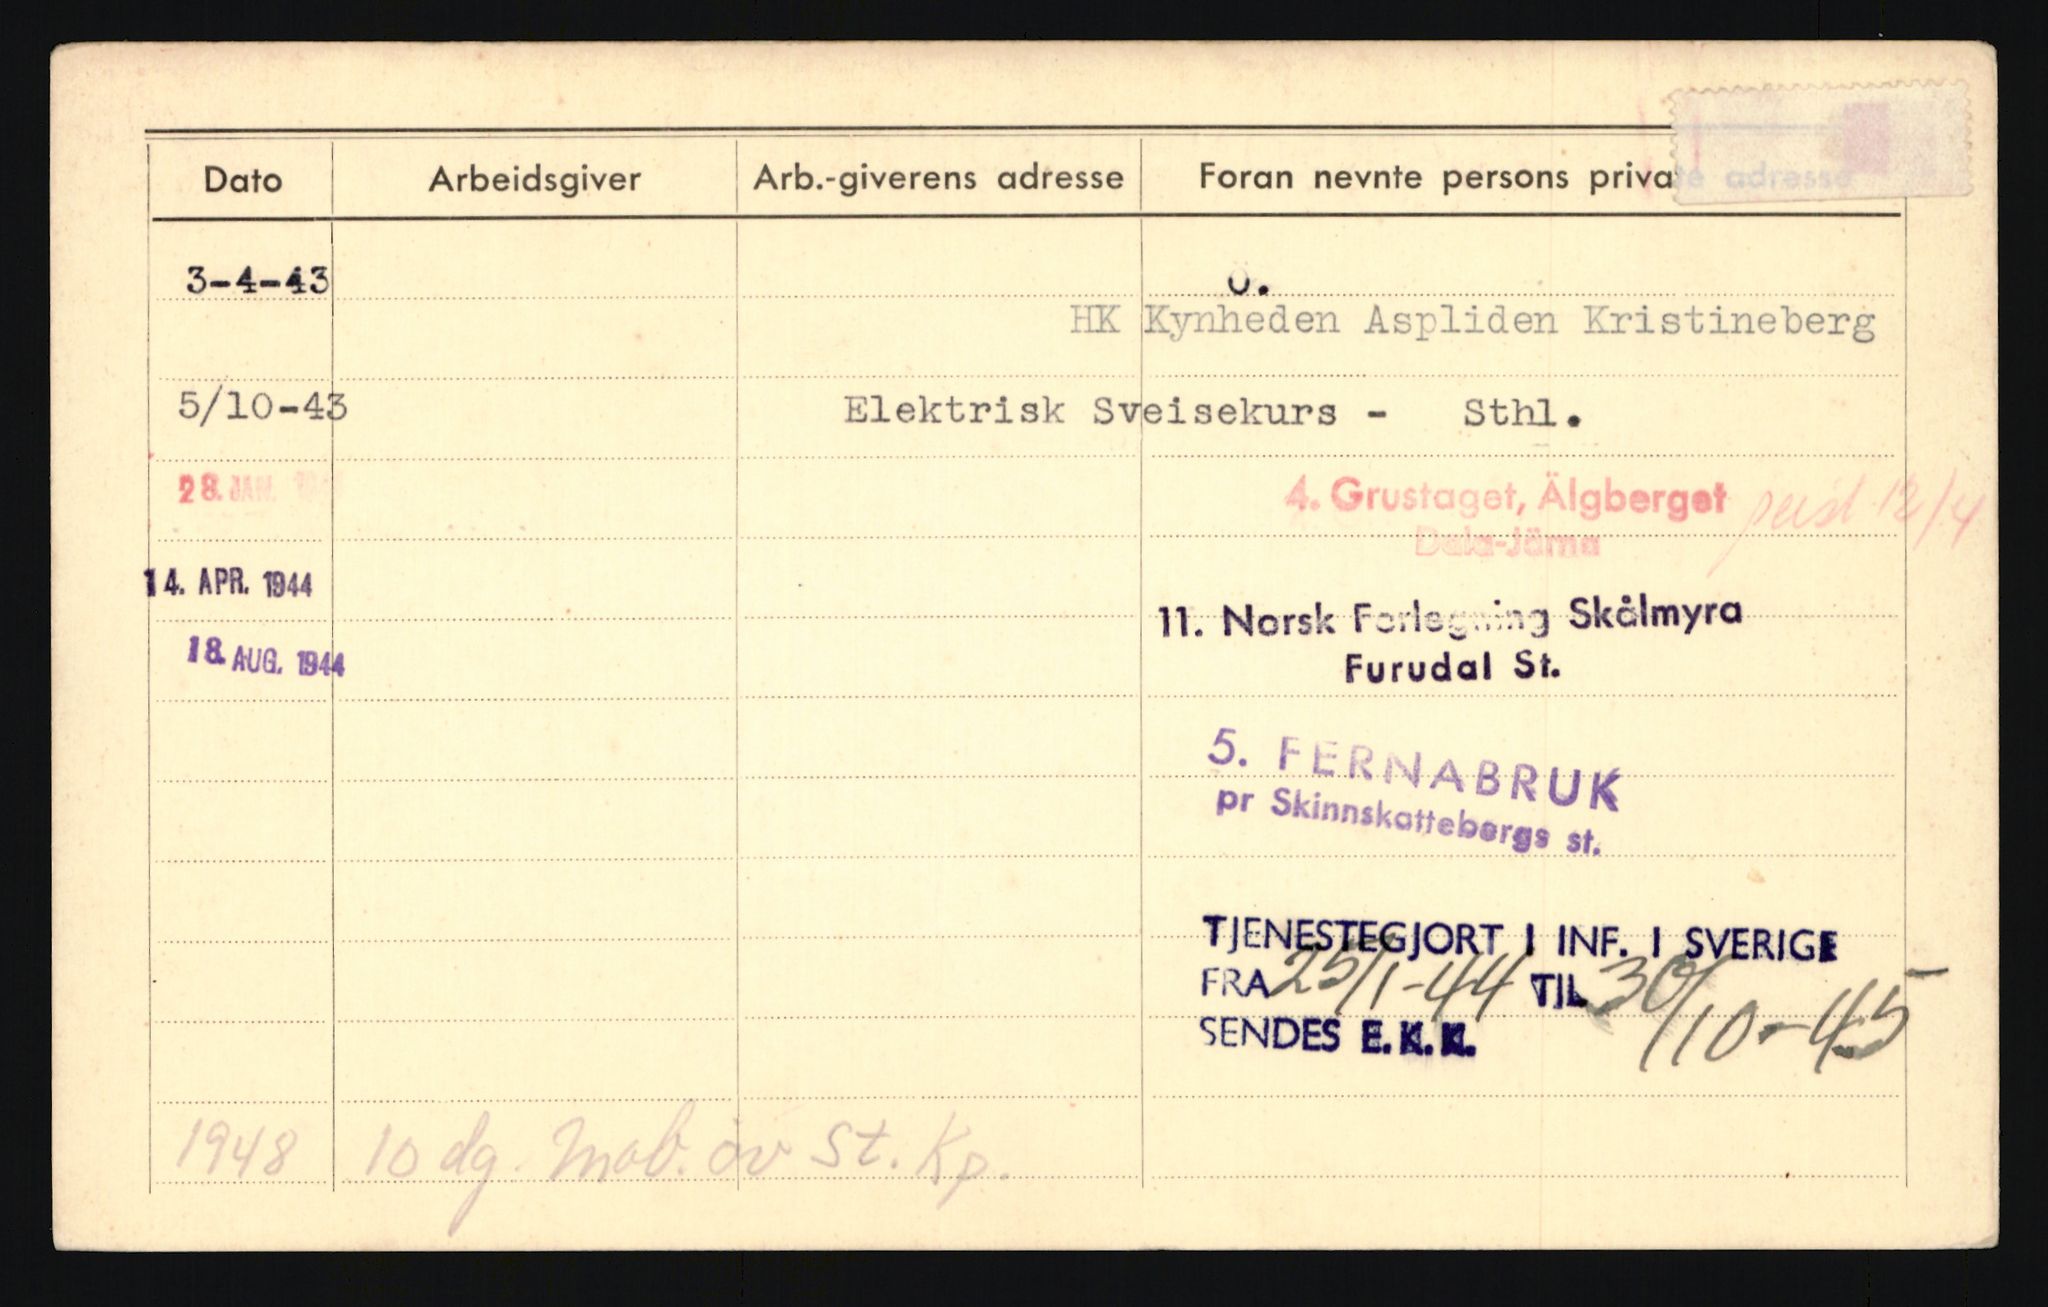 Dato Arbeidsgiver Arb.-giverens adresse Foran nevnte persons private adresse
3-4-43 Ö.
HK Kynheden Aspliden Kristineberg
5/10-43 Elektrisk Sveisekurs - Sthl.
28. JAN. 4. Grustaget, Älgberget
Dala-Järna
12/4
14. APR. 1944 11. Norsk Forlegning Skålmyra
18. AUG. 1944 Furudal St.
5. FERNABRUK
pr Skinnskattebergs st.
TJENESTEGJORT I INF. I SVERIGE
FRA 25/1-44 TIL 30/10-45
SENDES E.K.K.
1948 10 dg. Mob. øv St. Kp.